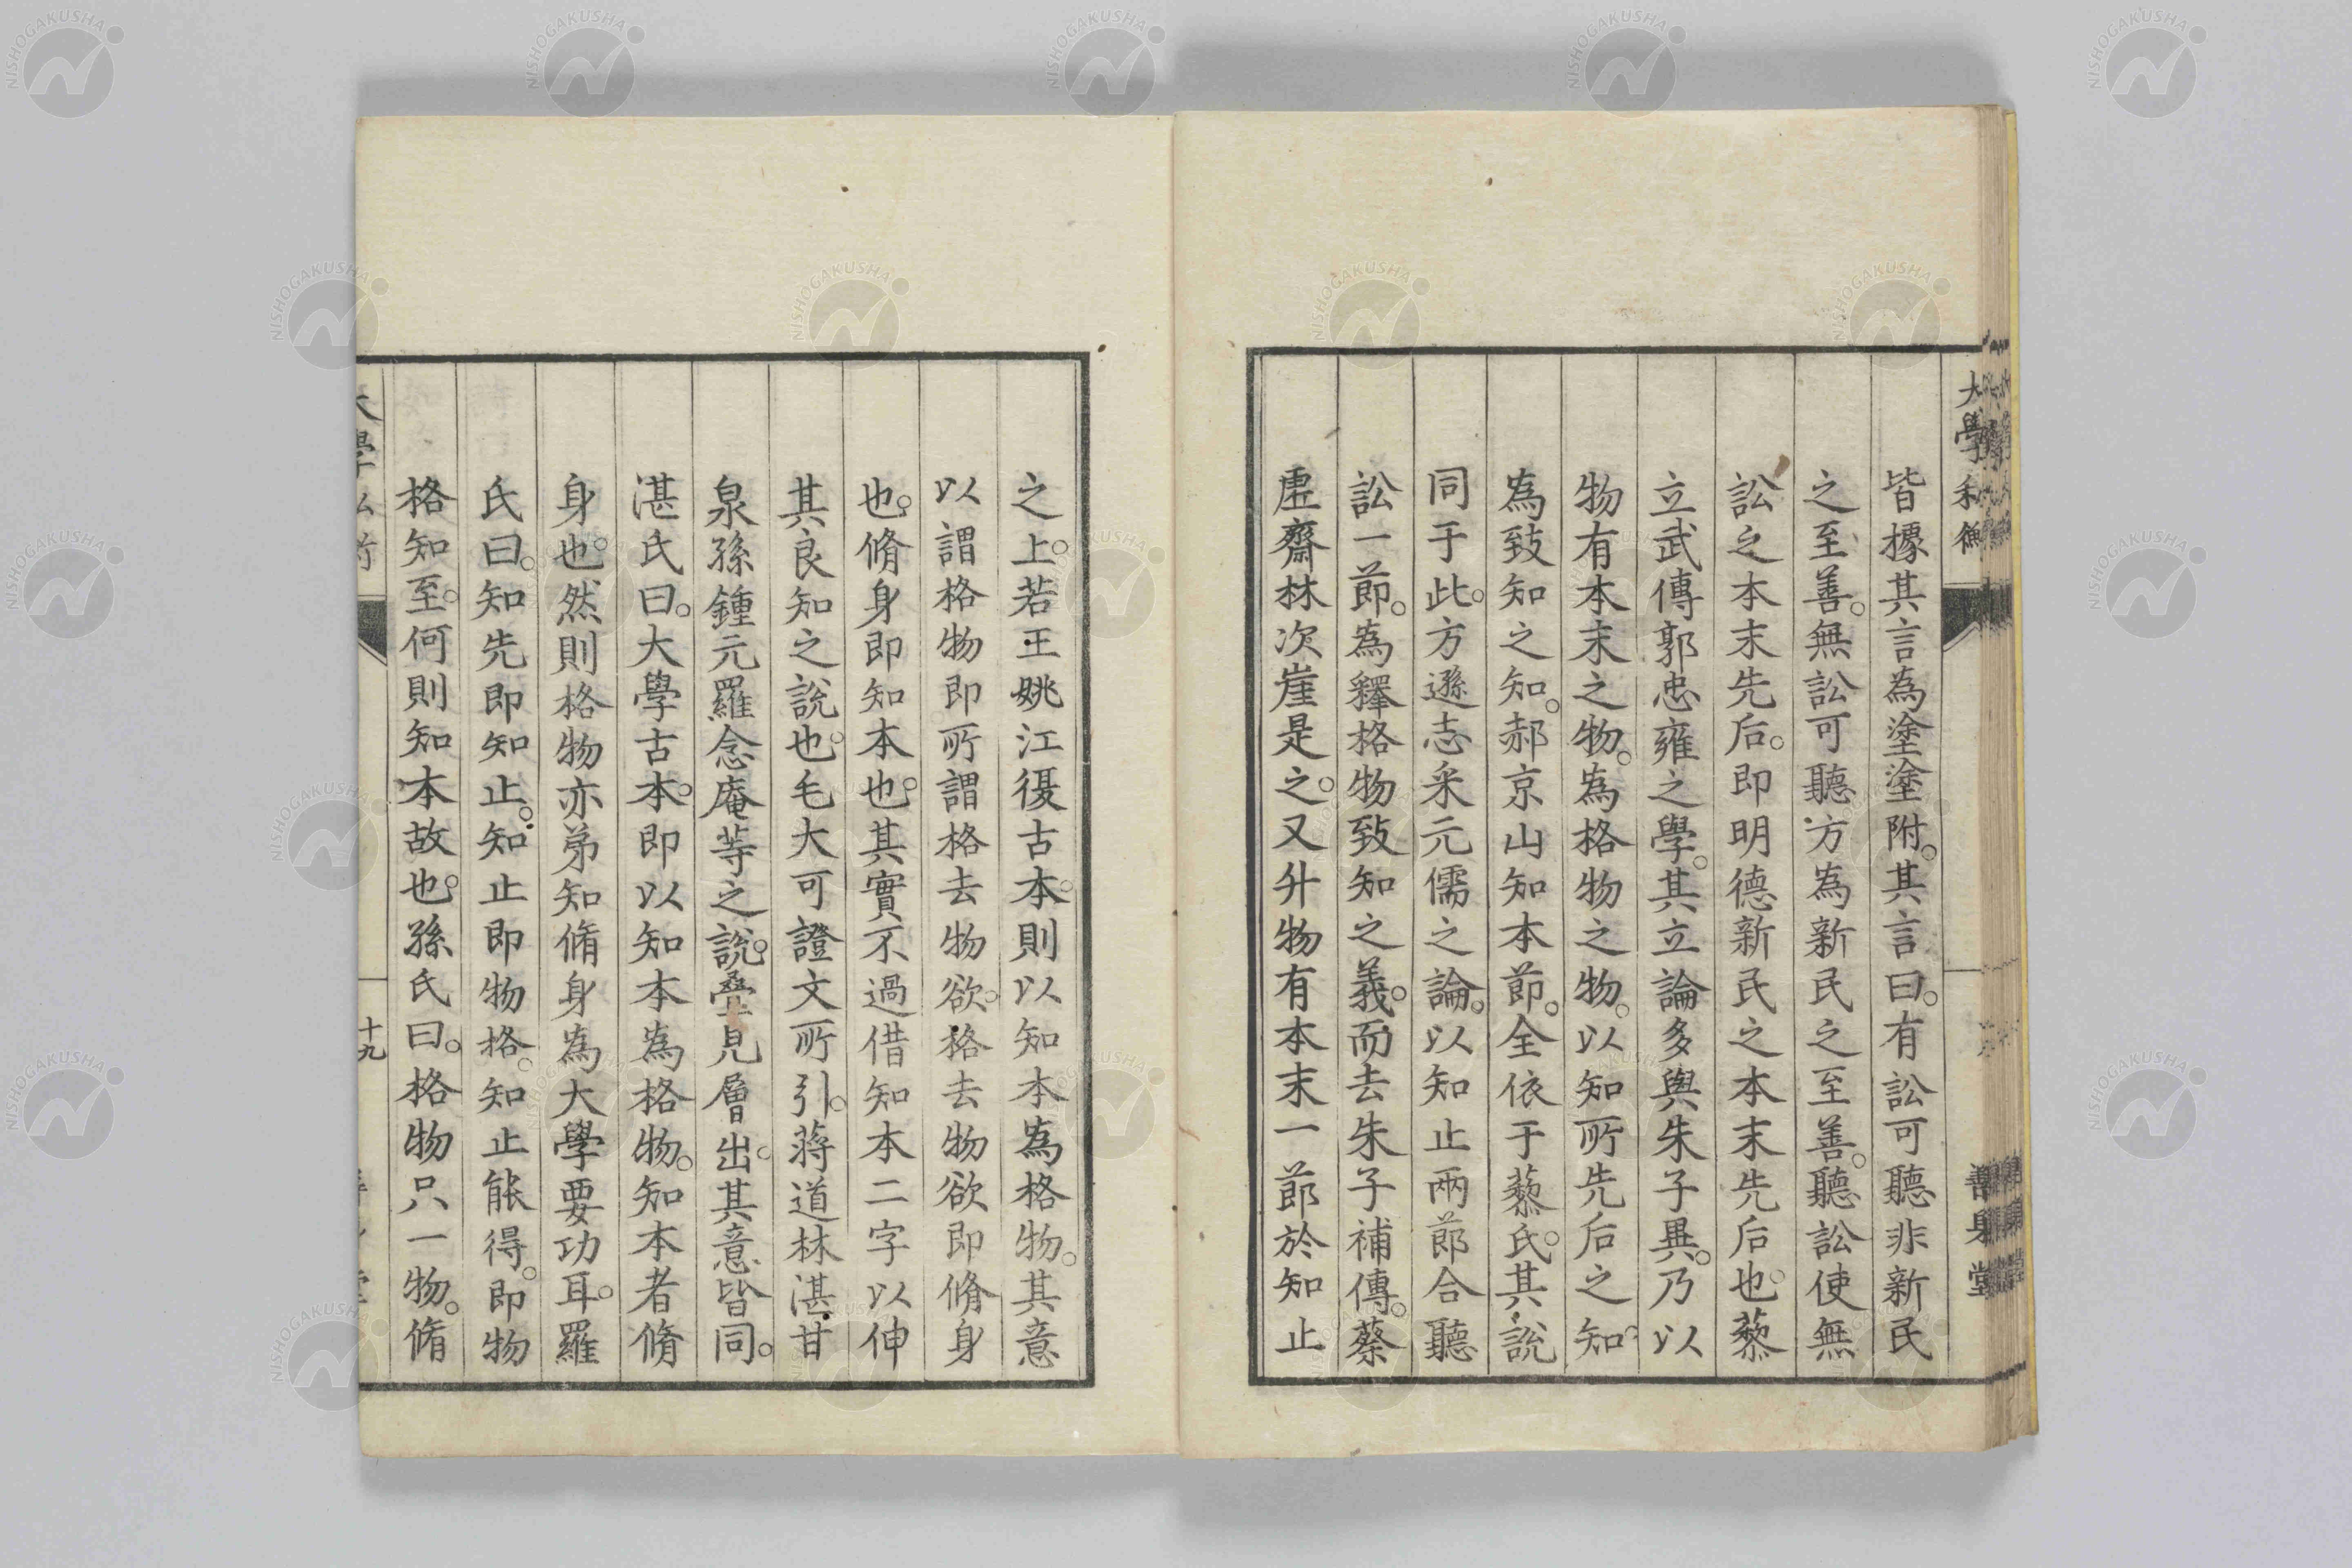 大學私衡
善身堂
皆據其言為塗塗附。其言曰。有訟可聽非新民
之至善。無訟可聽方為新民之至善。聽訟使無
訟之本末先后。即明德新民之本末先后也。藜
立武傳郭忠雍之學。其立論多與朱子異。乃以
物有本末之物。為格物之物。以知所先后之知
為致知之知。郝京山知本節。全依于藜氏。其說
同于此。方遜志采元儒之論。以知止兩節合聽
訟一節。為釋格物致知之義。而去朱子補傳。蔡
虛齋林次崖是之。又升物有本末一節於知止
之上。若王姚江復古本。則以知本為格物。其意
以謂格物即所謂格去物欲。格去物欲即脩身
也。脩身即知本也。其實不過借知本二字以伸
其良知之說也。毛大可證文所引。蔣道林湛甘
泉孫鍾元羅念庵等之說。疊見層出。其意皆同。
湛氏曰。大學古本。即以知本為格物。知本者脩
身也。然則格物亦弟知脩身為大學要功耳。羅
氏曰。知先即知止。知止即物格。知止能得。即物
格知至。何則知本故也。孫氏曰。格物只一物。脩
十九
NISHOGAKUSHA